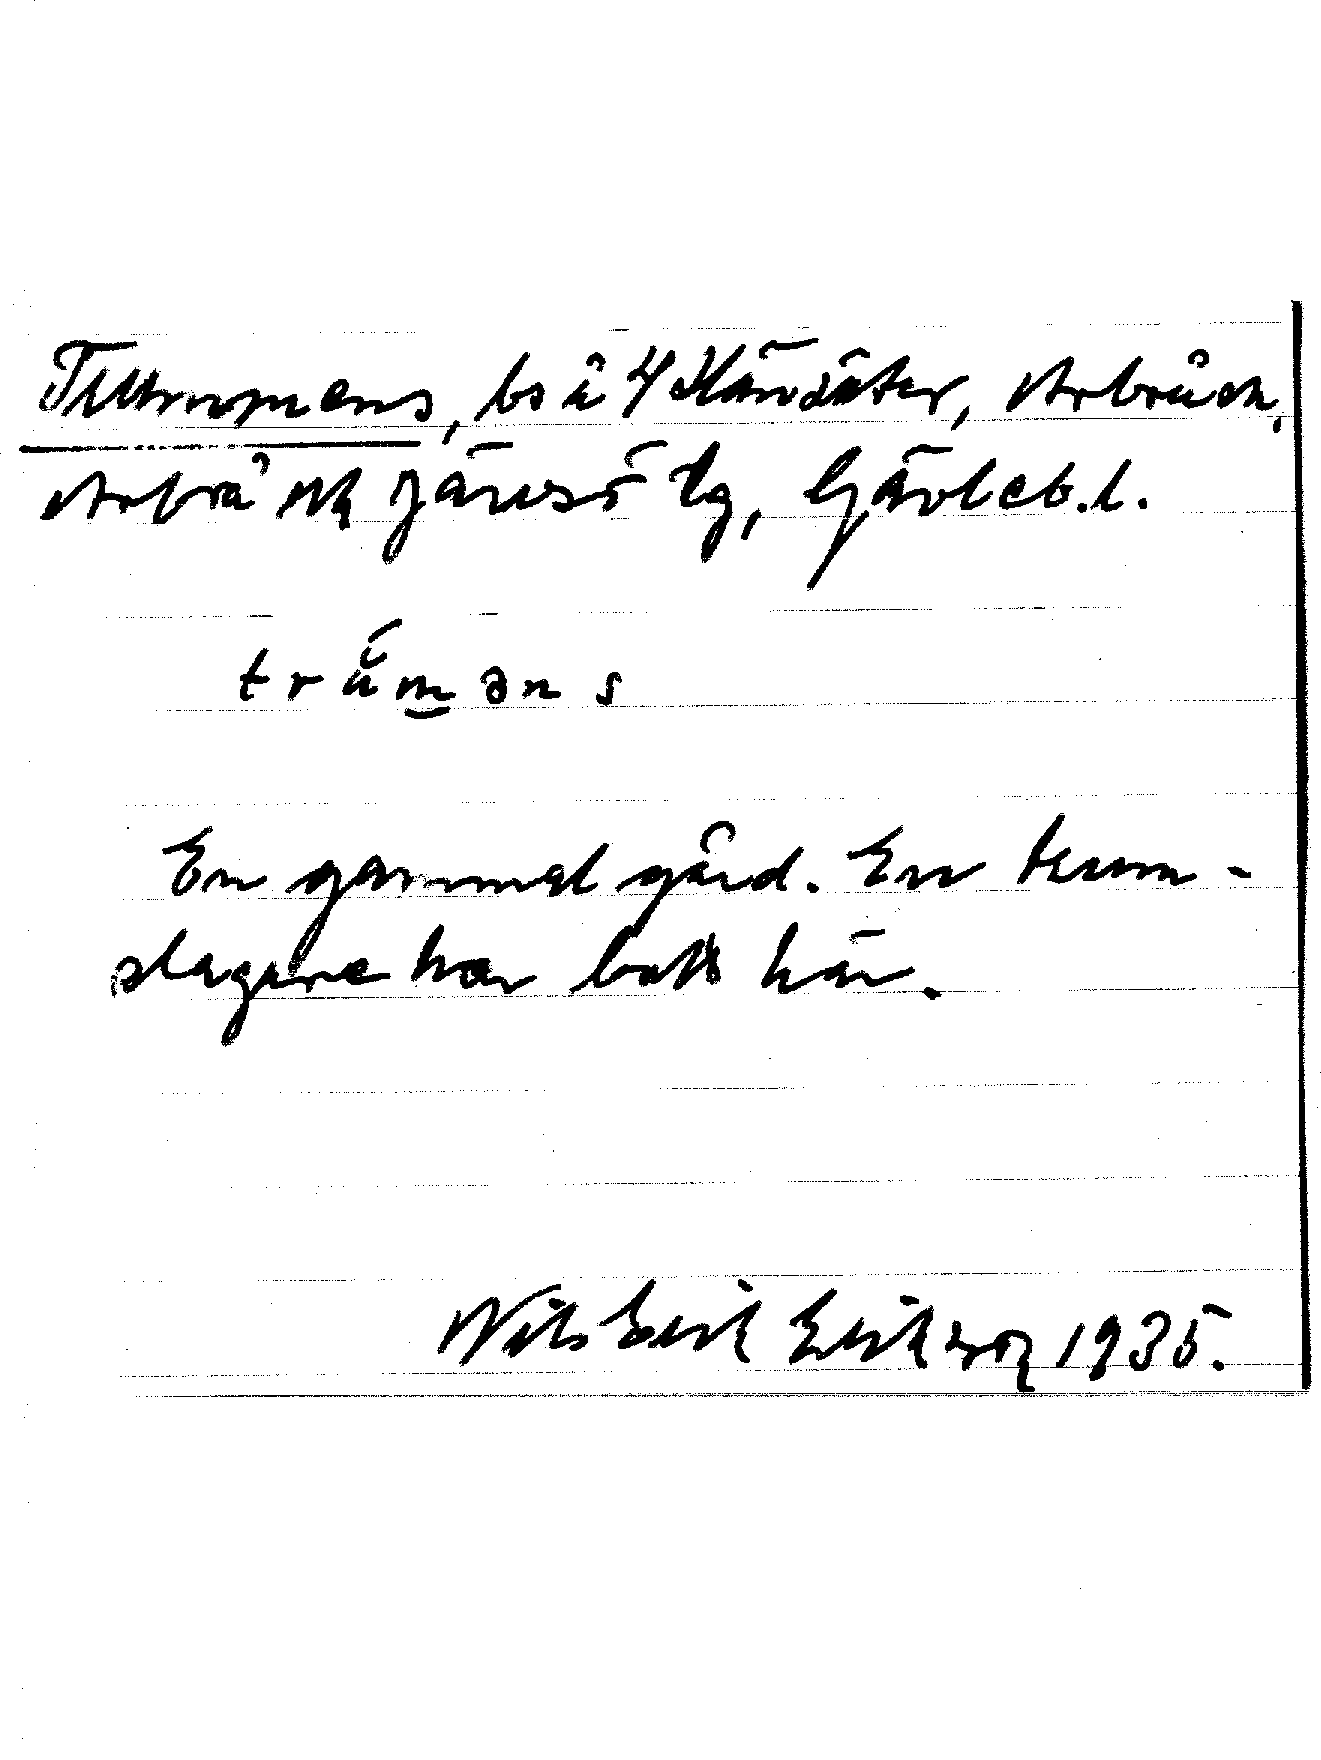 Trummens, bs å 4 Hänsäter, Arbrå sn,
Arbrå och Järvsö tg, Gävleb. l.
trúməns
En gammal gård. En trum-
slagare har bott här.
Nils Erik Erikson 1935.